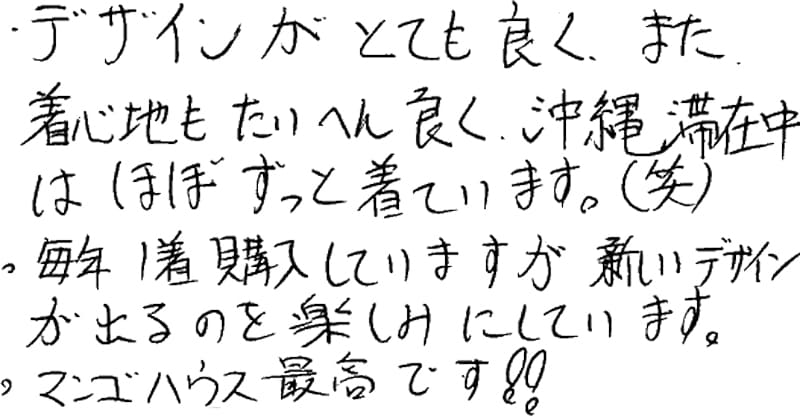 ・デザインがとても良く、また、
着心地もたいへん良く、沖縄滞在中
はほぼずっと着ています。(笑)
。毎年1着購入していますが新しいデザイン
が出るのを楽しみにしています。
。マンゴハウス最高です!!